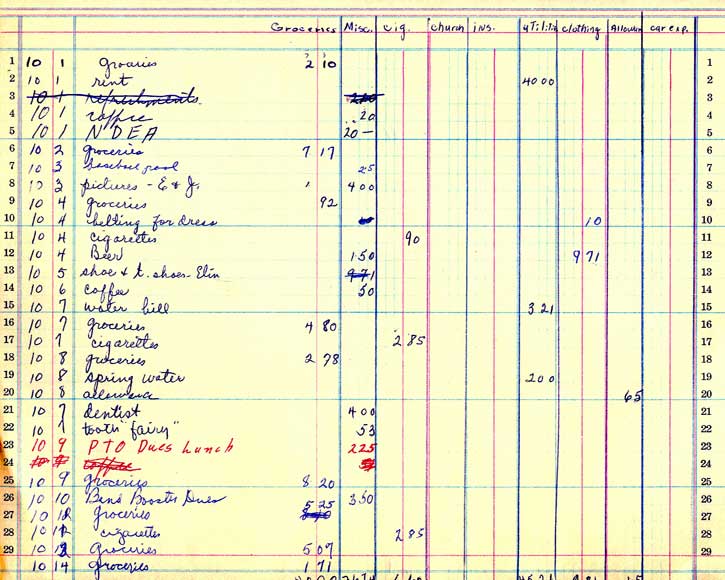 Groceries Misc. cig. church ins. utilities clothing Allowan car exp.
1 10 1 groceries 2 10 1
2 10 1 rent 40 00 2
3 10 1 refreshments 3
4 10 1 coffee 20 4
5 10 1 NDEA 20 — 5
6 10 2 groceries 7 17 6
7 10 3 baseball pool 25 7
8 10 3 pictures - E & J. 4 00 8
9 10 4 groceries 92 9
10 10 4 belting for dress 10 10
11 10 4 cigarettes 90 11
12 10 4 Beer 1 50 9 71 12
13 10 5 shoe & t. shoes - Elin 9 71 13
14 10 6 coffee 50 14
15 10 7 water bill 3 21 15
16 10 7 groceries 4 80 16
17 10 7 cigarettes 2 85 17
18 10 8 groceries 2 78 18
19 10 8 spring water 2 00 19
20 10 8 allowance 65 20
21 10 7 dentist 4 00 21
22 10 7 tooth "fairy" 53 22
23 10 9 PTO Dues Lunch 2 25 23
24 10 9 coffee 24
25 10 9 groceries 8 20 25
26 10 10 Band Booster Dues 3 50 26
27 10 12 groceries 5 25 27
28 10 12 cigarettes 2 85 28
29 10 12 Groceries 5 07 29
10 14 Groceries 1 71